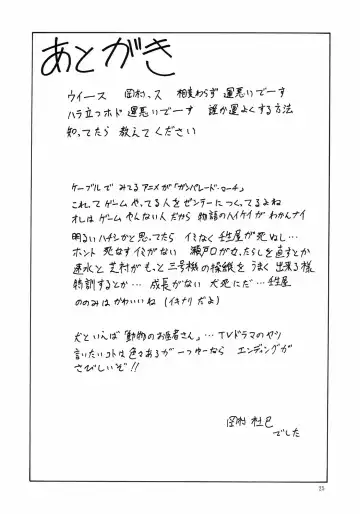 あとがき
ウイース 岡村っス 相変わらず 運悪いでーす
ハラ立つホド 運悪いでーす 誰か運よくする方法
知ってたら 教えてください
ケーブルで みてるアニメが「ガンパレード・マーチ」
これって ゲーム やってる人を ゼンテーに つくってるよね
オレは ゲーム やんない人だから 物語のハイケイが わかんナイ
明るいハナシかと思ってたら イミなく 壬生屋が 死ぬし…
ホント 死なす イミがない 瀬戸口が 女たらしを 直すとか
速水と 芝村が もっと 三号機の操縦を うまく 出来る様
特訓するとか… 成長がない 犬死にだ… 壬生屋
ののみは かわいいね (イキナリ だよ)
犬といえば「動物のお医者さん」… TVドラマのヤツ
言いたいコトは 色々あるが 一つゆーなら エンディングが
さびしいぞ!!
岡村
でした
25